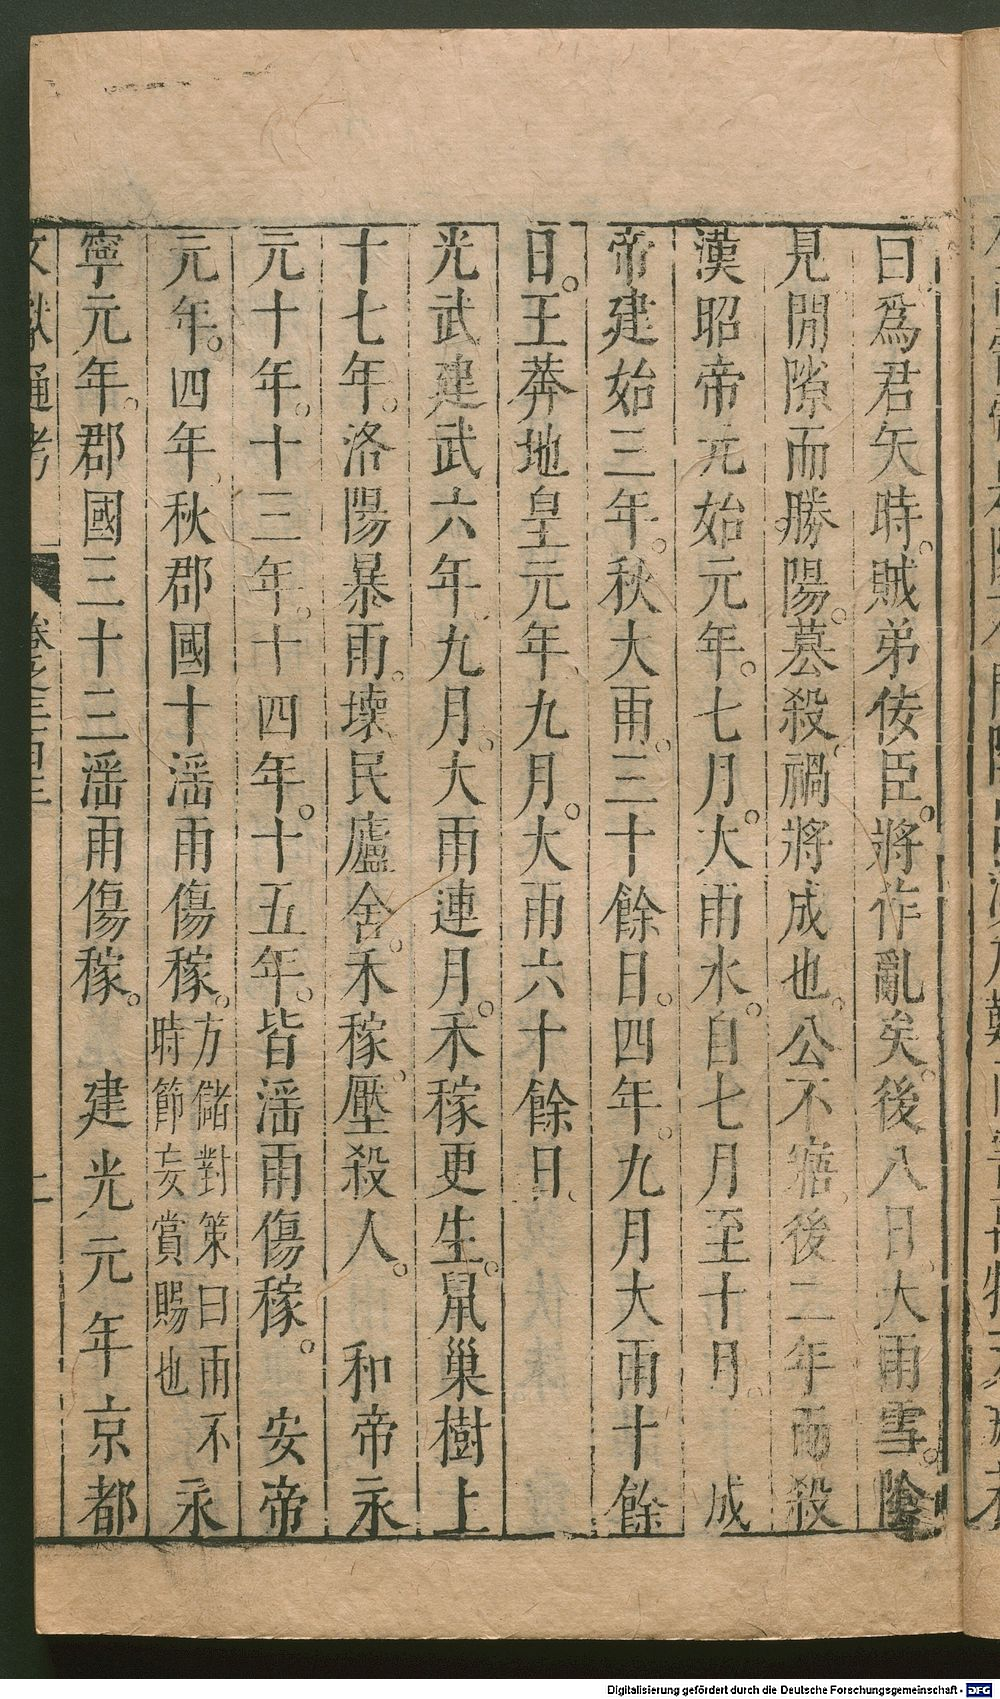 曰爲君矢時。賊弟佞臣。將作亂矣。後八日。大雨雪。陰
見閒隙而勝陽。蒸殺禍將成也。公不寤。後二年而殺
漢昭帝元始元年。七月。大雨水。自七月至十月。 成
帝建始三年。秋大雨。三十餘日。四年。九月大雨十餘
日。王莽地皇元年九月。大雨六十餘日。
光武建武六年九月。大雨連月。禾稼更生。鼠巢樹上
十七年。洛陽暴雨。壞民廬舍。禾稼。壓殺人。 和帝永
元十年。十三年。十四年。十五年。皆滛雨傷稼。 安帝
元年。四年秋郡國十滛雨傷稼。方儲對策曰雨不時節妄賞賜也 永
寧元年。郡國三十三滛雨傷稼。 建光元年京都
文獻通考 卷之三百三 上
Digitalisierung gefördert durch die Deutsche Forschungsgemeinschaft - DFG